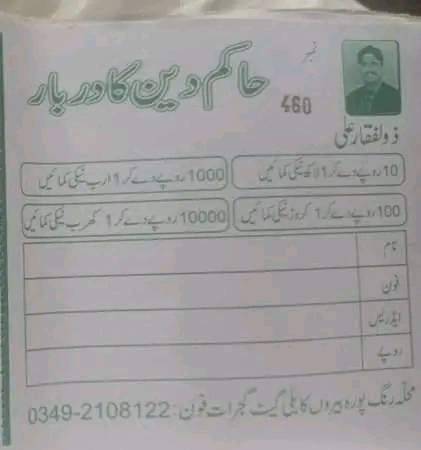 نمبر
460
حاکم دین کا دربار
ذولفقار علی
10 روپے دے کر 1 لاکھ نیکی کمائیں
1000 روپے دے کر 1 ارب نیکی کمائیں
100 روپے دے کر 1 کروڑ نیکی کمائیں
10000 روپے دے کر 1 کھرب نیکی کمائیں
نام
فون
ایڈریس
روپے
محلہ رنگ پورہ بیرون کابلی گیٹ گجرات فون: 0349-2108122